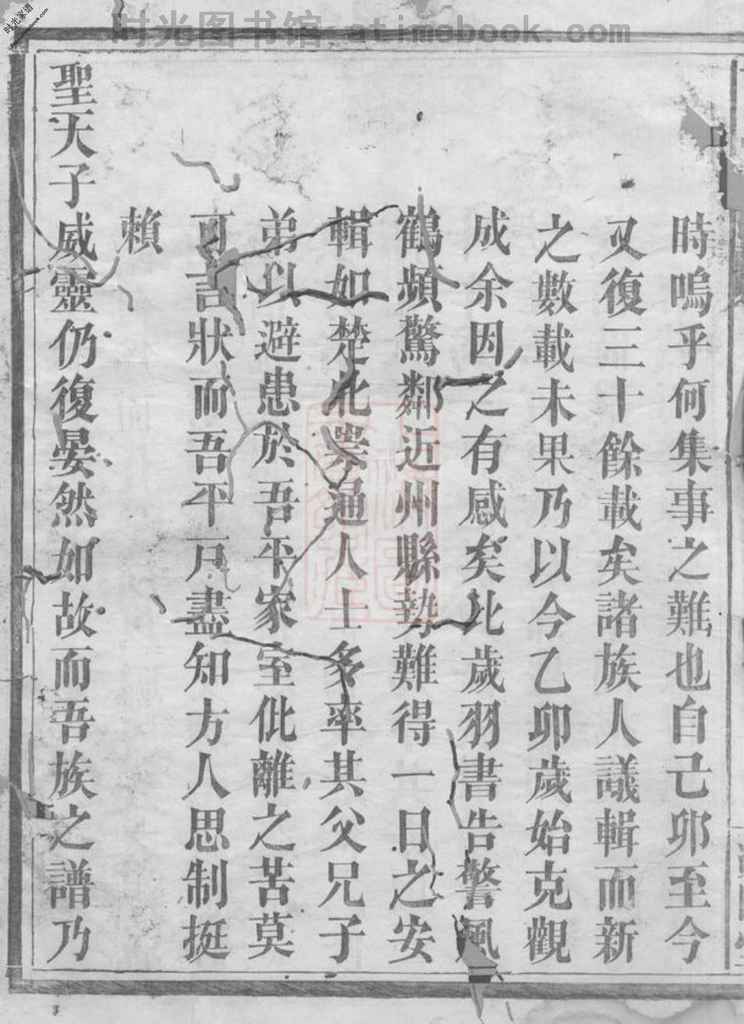 时光图书馆-atimebook.com
时光家谱
時嗚乎何集事之難也自己卯至今
又復三十餘載矣諸族人議輯而新
之數載未果乃以今乙卯歲始克觀
成余因之有感矣比歲羽書告警風
鶴頻驚鄰近州縣勢難得一日之安
輯如楚北崇通人士多率其父兄子
弟以避患於吾平家室仳離之苦莫
可言狀而吾平戶盡知方人思制挺
賴
聖天子威靈仍復晏然如故而吾族之譜乃